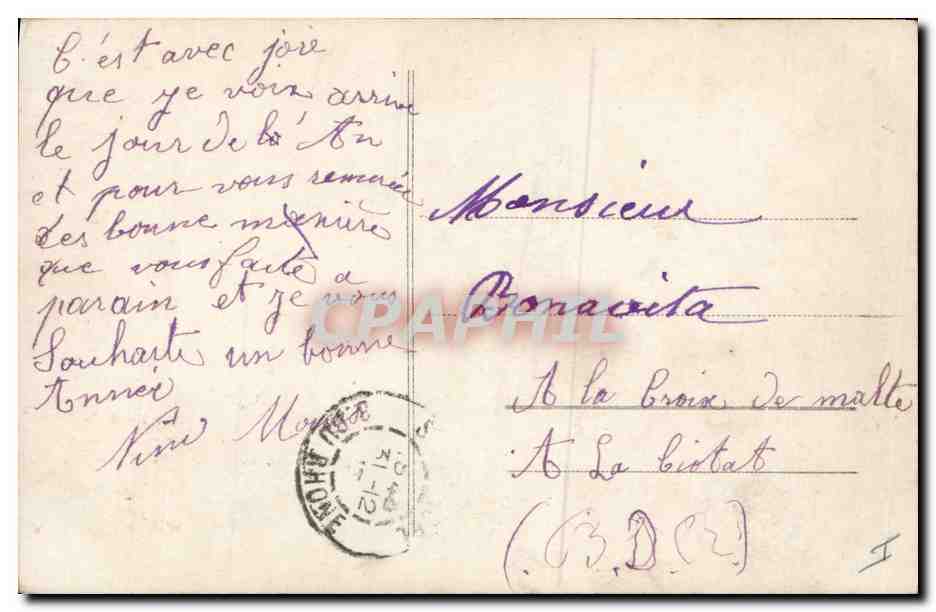 C'est avec joie
que je voix arrive
le jour de la An
et pour vous remercie
des bonne manière
que vous faite a
parain et je vous
Souhaite un bonne
Année
Nini
Monsieur
Bonavita
A la Croix de malte
A La Ciotat
(B.D.R)
CPAPHIL
DU RHONE
I